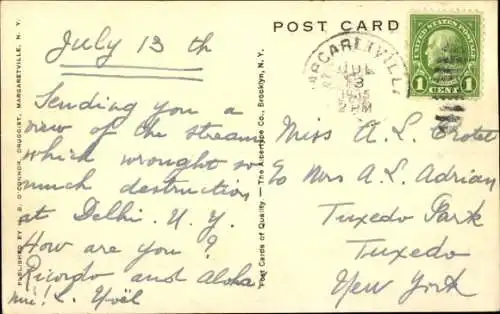 POST CARD
UNITED STATES POSTAGE
1 CENT 1
MARGARETVILLE
JUL
13
1935
PM
July 13 th
Sending you a
view of the stream
which wrought so
much destruction
at Delhi. N.Y.
How are you?
Ricordo and Aloha
nui! L. Yoël
Miss A. L.
to Mrs A. L. Adrian
Tuxedo Park
Tuxedo
New York
PUBLISHED BY O'CONNOR, DRUGGIST, MARGARETVILLE, N. Y.
Post Cards of Quality. — The Albertype Co., Brooklyn, N. Y.